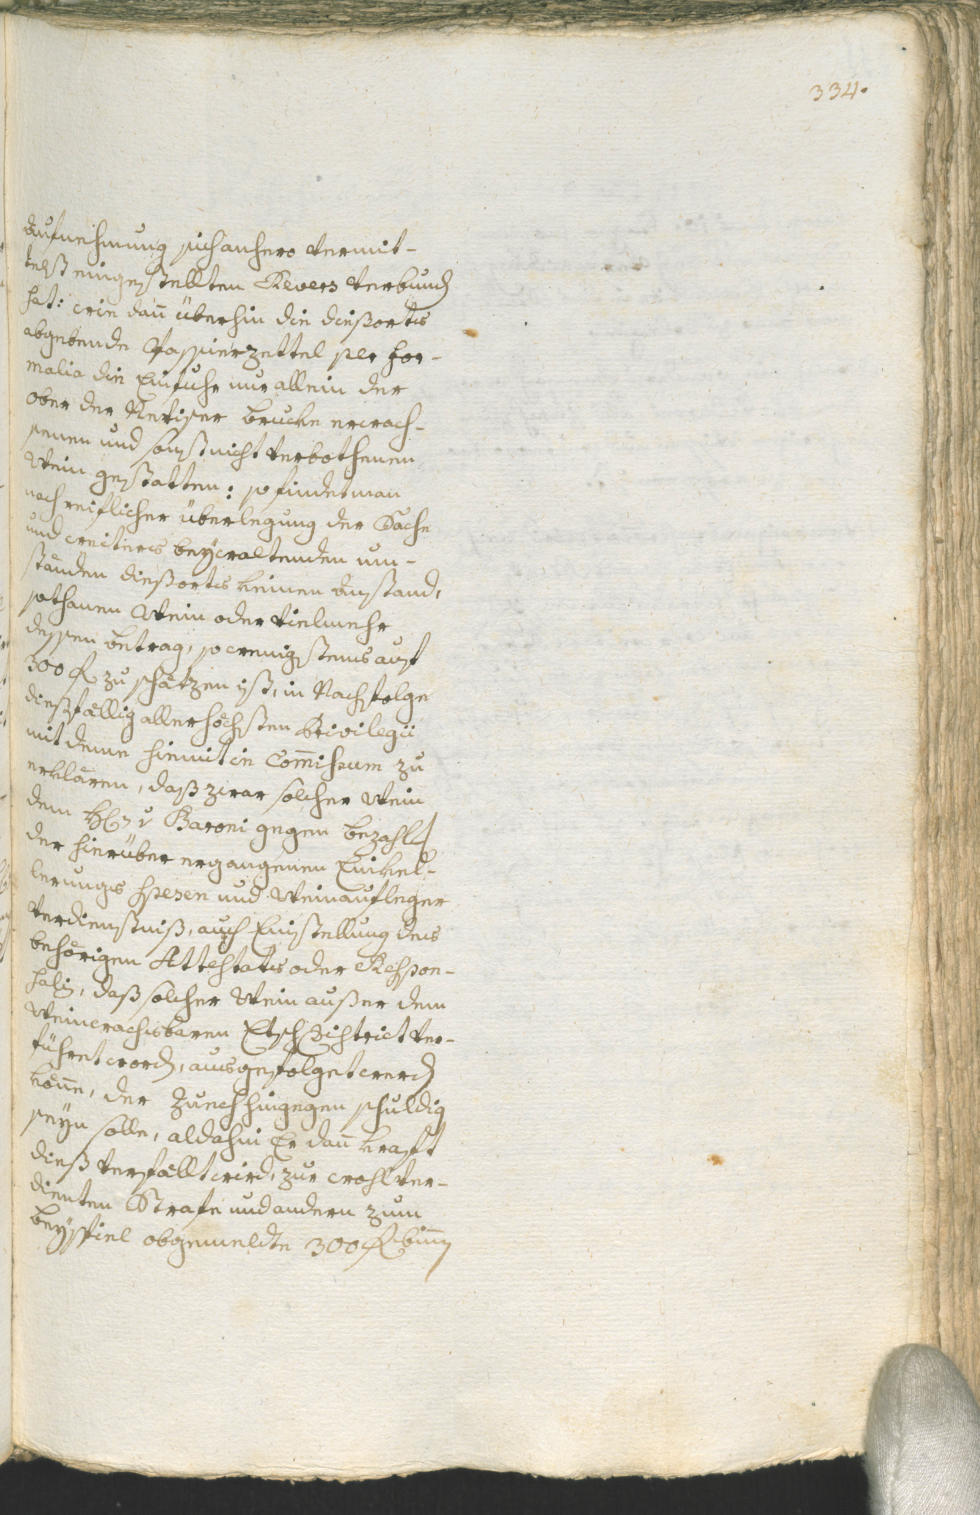 334.
Aufnehmung sich anhero vermit-
telst eingestellten Revers verbund
hat: wie dañ überhin die dießorts
abgebende Passierzettel per for-
malia die Einfuhr nur allein der
ober der Neviser brucke erwach-
senen und sonst nicht verbothenen
Wein gestatten: so findet man
nach reiflicher überlegung der Sache
und weiters beÿwaltenden um-
ständen dießorts keinen anstand,
sothanen Wein oder vielmehr
dessen betrag, so wenigstens auf
300 f zu schätzen ist, in Nachfolge
dießfällig allerhöchsten Privilegii
mit deme hiemit in Com̄issum zu
erklären, daß zwar solcher Wein
dem H v Baroni gegen bezahl
der hierüber ergangenen Einkel-
lerungs spesen und Weinaufleger
verdienstniß, auch Einstellung des
behörigen Attestats oder Respon-
sali, daß solcher Wein außer dem
Weinwachsbaren Etschdistrict ver-
führet word, ausgefolget werd
köñe, der Zuech hingegen schuldig
seÿn solle, aldahin Er dañ kraft
dieß verfällt wird, zur wohlver-
dienten Strafe und andern zum
beÿspiel obgemeldte 300 f biñ